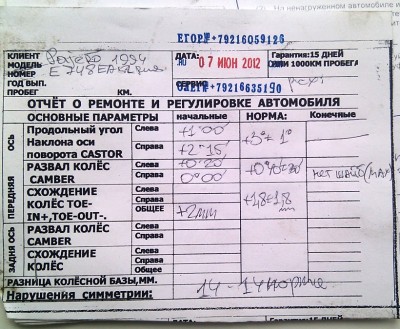 На ненагруженном автомобиле
ЕГОР#+79216059126
КЛИЕНТ Pajero 1994
МОДЕЛЬ
НОМЕР E748EA
ГОД ВЫП.
ПРОБЕГ КМ.
ДАТА: 07 ИЮН 2012
Гарантия:15 ДНЕЙ
ИЛИ 1000КМ ПРОБЕГА
СЕРВИС
+79216635190
ОТЧЁТ О РЕМОНТЕ И РЕГУЛИРОВКЕ АВТОМОБИЛЯ
ОСНОВНЫЕ ПАРАМЕТРЫ начальные НОРМА: Конечные
ПЕРЕДНЯЯ ОСЬ
Продольный угол Наклона оси поворота CASTOR Слева +1°00' +3°± 1°
Справа +2°15
РАЗВАЛ КОЛЁС CAMBER Слева +0°20 +0°40±30 нет шайб (MAX)
Справа 0°00'
СХОЖДЕНИЕ КОЛЁС TOE-IN+,TOE-OUT-. Слева +1,8±1,8 мм
Справа
ОБЩЕЕ +2мм
ЗАДНЯЯ ОСЬ
РАЗВАЛ КОЛЁС CAMBER Слева
Справа
СХОЖДЕНИЕ КОЛЁС Слева
Справа
Общее
РАЗНИЦА КОЛЁСНОЙ БАЗЫ,ММ. 14-14 норма
Нарушения симметрии:
15 ДНЕЙ